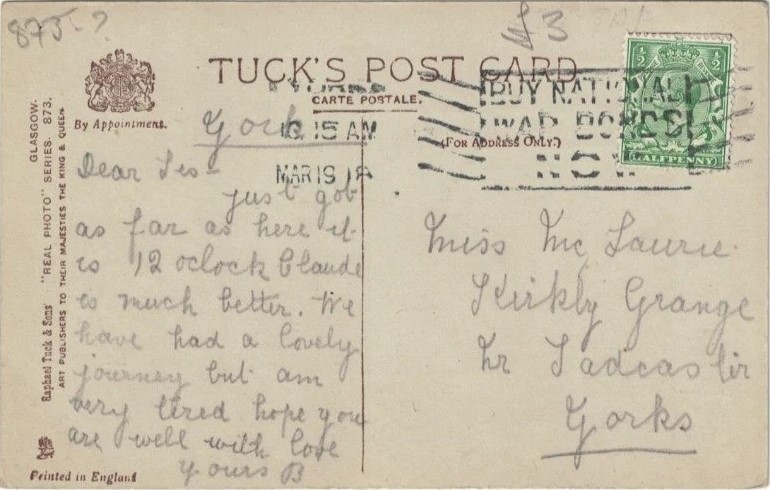 873-?
£3
TUCK'S POST CARD
CARTE POSTALE.
(FOR ADDRESS ONLY.)
By Appointment.
GLASGOW.
"REAL PHOTO" SERIES. 873.
Raphael Tuck & Sons'
ART PUBLISHERS TO THEIR MAJESTIES THE KING & QUEEN
Printed in England
1/2 1/2
HALFPENNY
10.15 AM
MAR 19 18
BUY NATIONAL
WAR BONDS
NOW
York
Dear Jes-
just got
as far as here it
is 12 oclock Claude
is much better. We
have had a lovely
journey but am
very tired hope you
are well with love
yours B
Miss Mc Laurie
Kirkly Grange
Nr Tadcaster
Yorks